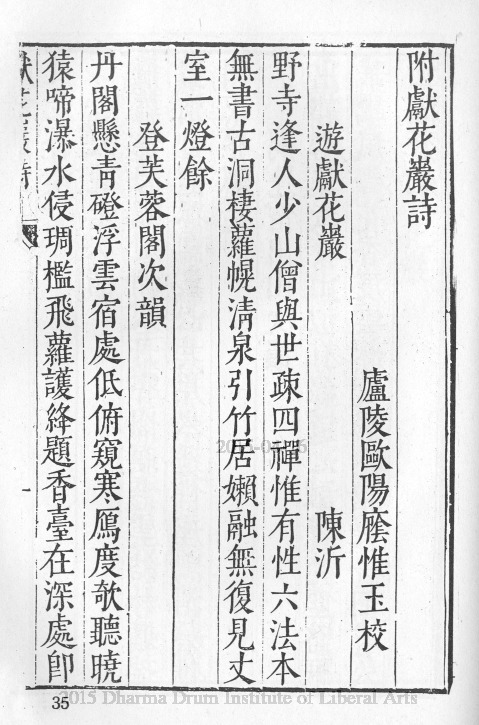 附獻花巖詩
盧陵歐陽㢙惟玉校
遊獻花巖 陳沂
野寺逢人少山僧與世疎四禪惟有性六法本
無書古洞棲蘿幌清泉引竹居嬾融無復見丈
室一燈餘
登芙蓉閣次韻
丹閣懸青磴浮雲宿處低俯窺寒鴈度欹聽曉
猿啼瀑水侵琱檻飛蘿護絳題香臺在深處卽
獻花巖詩
一
35
2015 Dharma Drum Institute of Liberal Arts